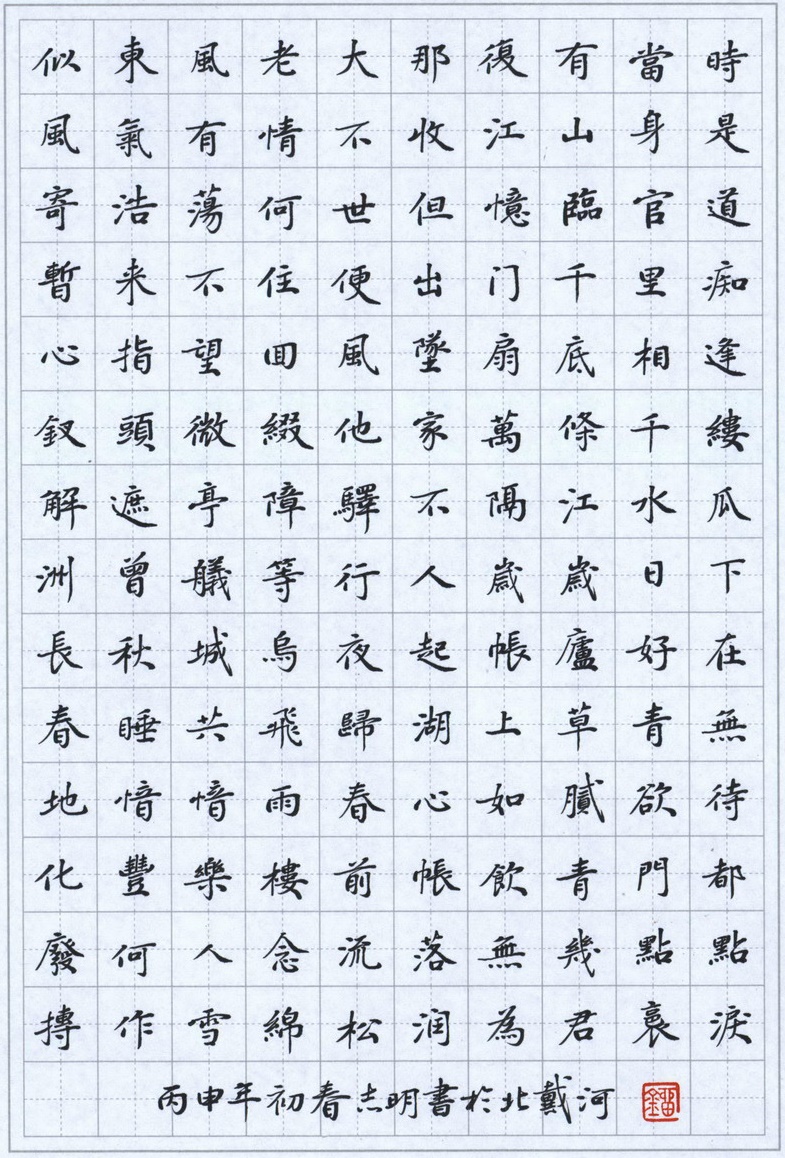 似東風老大那復有當時
風氣有情不收江山身是
寄浩蕩何世但憶臨官道
暫来不住便出门千里痴
心指望囬風墜扇底相逢
釵頭微綴他家萬條千縷
解遮亭障驛不隔江水瓜
洲曾艤等行人歲歲日下
長秋城烏夜起帳廬好在
春睡共飛歸湖上草青無
地愔愔雨春心如膩欲待
化豐樂樓前帳飲青門都
廢何人念流落無幾點點
摶作雪綿松润為君裛淚
丙申年初春志明書於北戴河